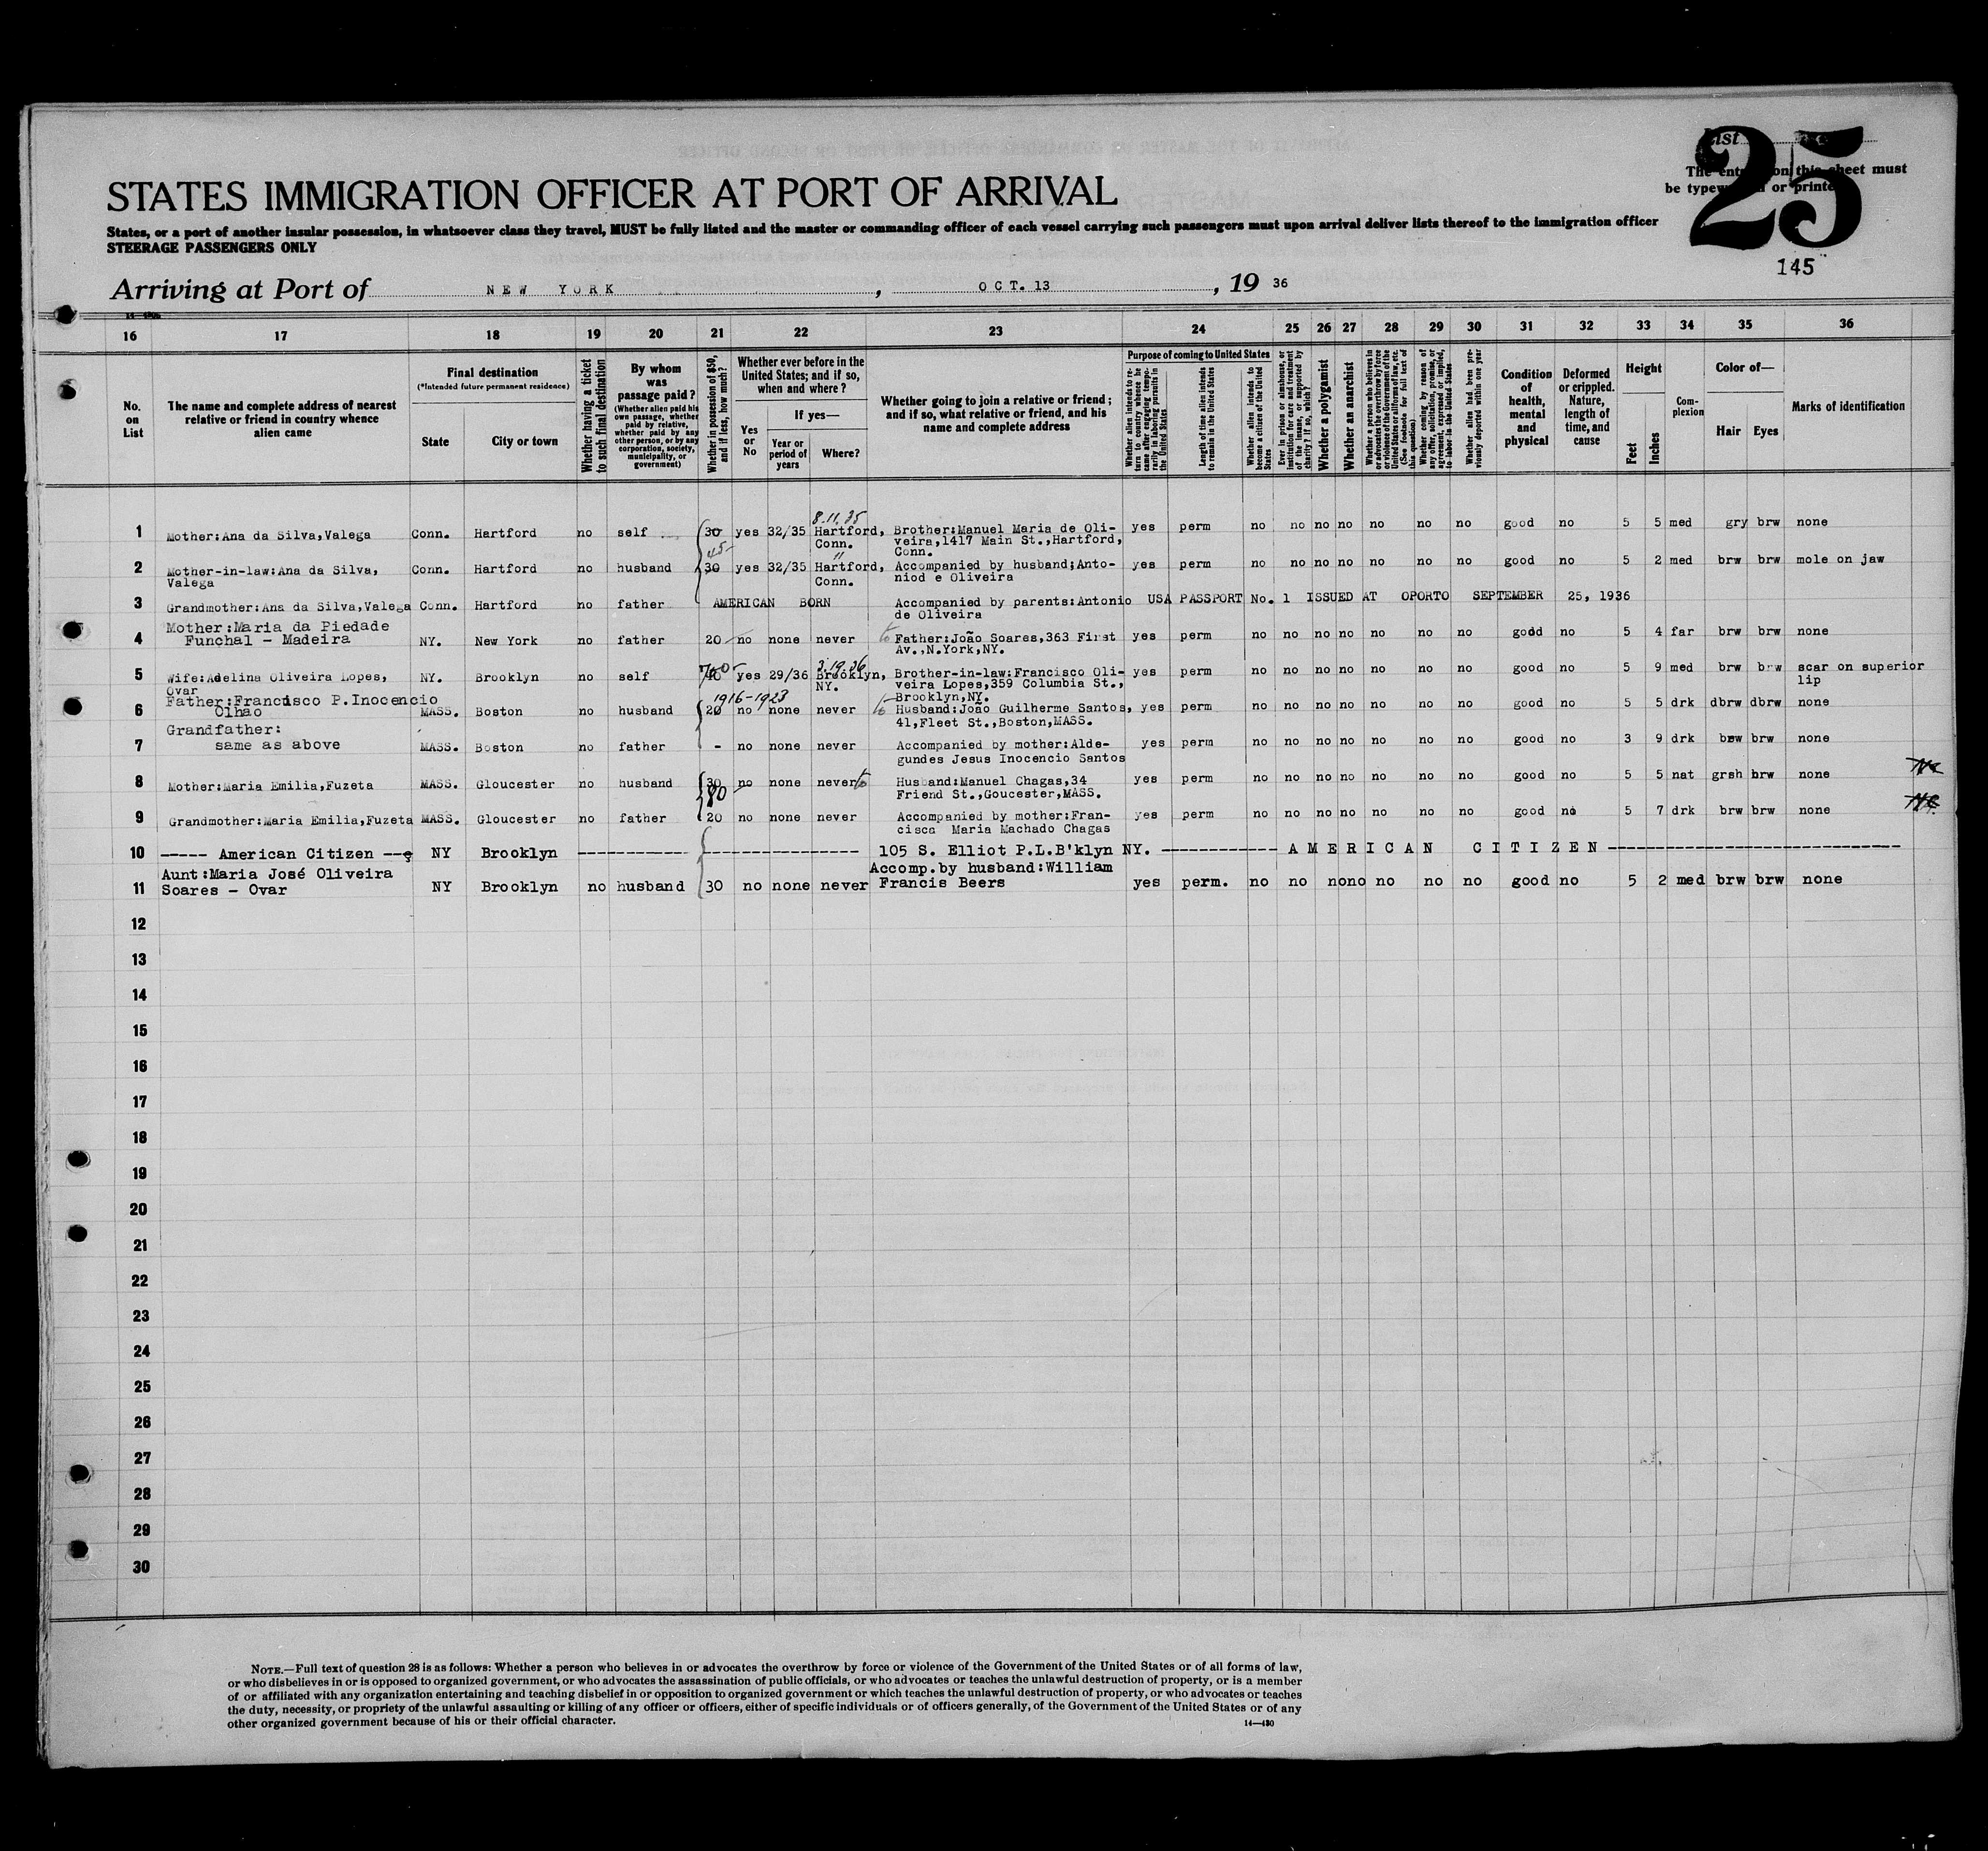 List
25
The entries on this sheet must
be typewritten or printed
145
STATES IMMIGRATION OFFICER AT PORT OF ARRIVAL
States, or a port of another insular possession, in whatsoever class they travel, MUST be fully listed and the master or commanding officer of each vessel carrying such passengers must upon arrival deliver lists thereof to the immigration officer
STEERAGE PASSENGERS ONLY
Arriving at Port of NEW YORK, OCT. 13, 19 36
16 17 18 19 20 21 22 23 24 25 26 27 28 29 30 31 32 33 34 35 36
No. on List
The name and complete address of nearest relative or friend in country whence alien came
Final destination
(*Intended future permanent residence)
State
City or town
Whether having a ticket to such final destination
By whom was passage paid?
(Whether alien paid his own passage, whether paid by relative, whether paid by any other person, or by any corporation, society, municipality, or government)
Whether in possession of $50, and if less, how much?
Whether ever before in the United States; and if so, when and where?
Yes or No
If yes—
Year or period of years
Where?
Whether going to join a relative or friend; and if so, what relative or friend, and his name and complete address
Purpose of coming to United States
Whether alien intends to return to country whence he came after engaging temporarily in laboring pursuits in the United States
Length of time alien intends to remain in the United States
Whether alien intends to become a citizen of the United States
Ever in prison or almshouse, or institution for care and treatment of the insane, or supported by charity? If so, which?
Whether a polygamist
Whether an anarchist
Whether a person who believes in or advocates the overthrow by force or violence of the Government of the United States or all forms of law, etc. (See footnote for full text of this question)
Whether coming by reason of any offer, solicitation, promise, or agreement, expressed or implied, to labor in the United States
Whether alien had been previously deported within one year
Condition of health, mental and physical
Deformed or crippled. Nature, length of time, and cause
Height
Feet
Inches
Complexion
Color of—
Hair
Eyes
Marks of identification
8.11.35
1 Mother:Ana da Silva,Valega Conn. Hartford no self 30 yes 32/35 Hartford, Brother:Manuel Maria de Oli- yes perm no no no no no no no good no 5 5 med gry brw none
45- Conn. veira,1417 Main St.,Hartford,
" Conn.
2 Mother-in-law:Ana da Silva, Conn. Hartford no husband 30 yes 32/35 Hartford, Accompanied by husband;Anto- yes perm no no no no no no no good no 5 2 med brw brw mole on jaw
Valega Conn. niod e Oliveira
3 Grandmother:Ana da Silva,Valega Conn. Hartford no father AMERICAN BORN Accompanied by parents:Antonio USA PASSPORT No. 1 ISSUED AT OPORTO SEPTEMBER 25, 1936
de Oliveira
Mother:Maria da Piedade
4 Funchal - Madeira NY. New York no father 20 no none never Father:João Soares,363 First yes perm no no no no no no no good no 5 4 far brw brw none
Av.,N.York,NY.
3.19.36
5 Wife:Adelina Oliveira Lopes, NY. Brooklyn no self 40 yes 29/36 Brooklyn, Brother-in-law:Francisco Oli- yes perm no no no no no no no good no 5 9 med brw brw scar on superior
Ovar NY. veira Lopes,359 Columbia St., lip
Brooklyn,NY.
1916-1923
Father:Francisco P.Inocencio
6 Olhao MASS. Boston no husband 20 no none never Husband:João Guilherme Santos, yes perm no no no no no no no good no 5 5 drk dbrw dbrw none
41,Fleet St.,Boston,MASS.
Grandfather:
7 same as above MASS. Boston no father - no none never Accompanied by mother:Alde- yes perm no no no no no no no good no 3 9 drk brw brw none
gundes Jesus Inocencio Santos
8 Mother:Maria Emilia,Fuzeta MASS. Gloucester no husband 30 no none never Husband:Manuel Chagas,34 yes perm no no no no no no no good no 5 5 nat grsh brw none
80 Friend St.,Goucester,MASS.
9 Grandmother:Maria Emilia,Fuzeta MASS. Gloucester no father 20 no none never Accompanied by mother:Fran- yes perm no no no no no no no good no 5 7 drk brw brw none
cisca Maria Machado Chagas
10 ----- American Citizen --- NY Brooklyn ---------- 105 S. Elliot P.L.B'klyn NY. ---------- AMERICAN CITIZEN ----------
Aunt:Maria José Oliveira Accomp.by husband:William
11 Soares - Ovar NY Brooklyn no husband 30 no none never Francis Beers yes perm. no no no no no no no good no 5 2 med brw brw none
12
13
14
15
16
17
18
19
20
21
22
23
24
25
26
27
28
29
30
NOTE.—Full text of question 28 is as follows: Whether a person who believes in or advocates the overthrow by force or violence of the Government of the United States or of all forms of law,
or who disbelieves in or is opposed to organized government, or who advocates the assassination of public officials, or who advocates or teaches the unlawful destruction of property, or is a member
of or affiliated with any organization entertaining and teaching disbelief in or opposition to organized government or which teaches the unlawful destruction of property, or who advocates or teaches
the duty, necessity, or propriety of the unlawful assaulting or killing of any officer or officers, either of specific individuals or of officers generally, of the Government of the United States or of any
other organized government because of his or their official character.
14—430